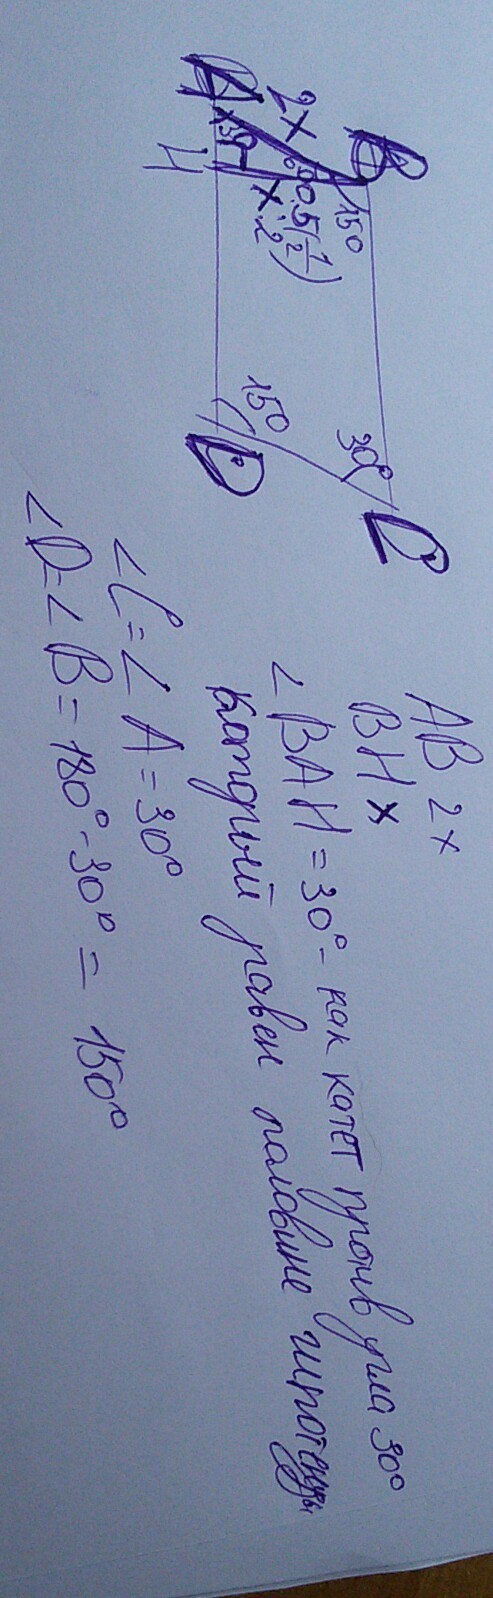 B
C
15°
30°
2x
30.5(1/2)
x:2
15°
A
H
D
AB 2x
BH x
∠BAH = 30° - как катет против угла 30°
который равен половине гипотенузы
∠C = ∠A = 30°
∠D = ∠B = 180° - 30° = 150°